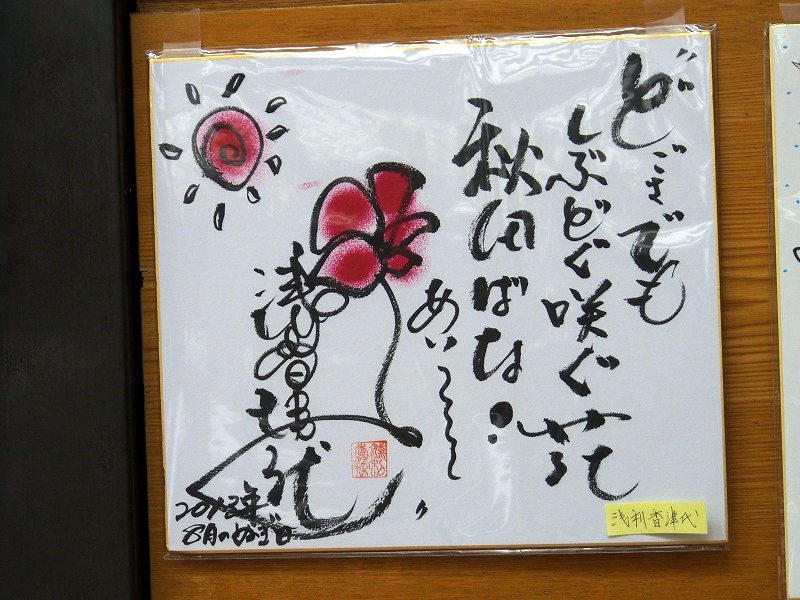 どごさでも
しぶどぐ咲ぐ花
秋田ばな!
あいーーー
浅利香津代
2013年
8月のぬぎ日
浅利香津代